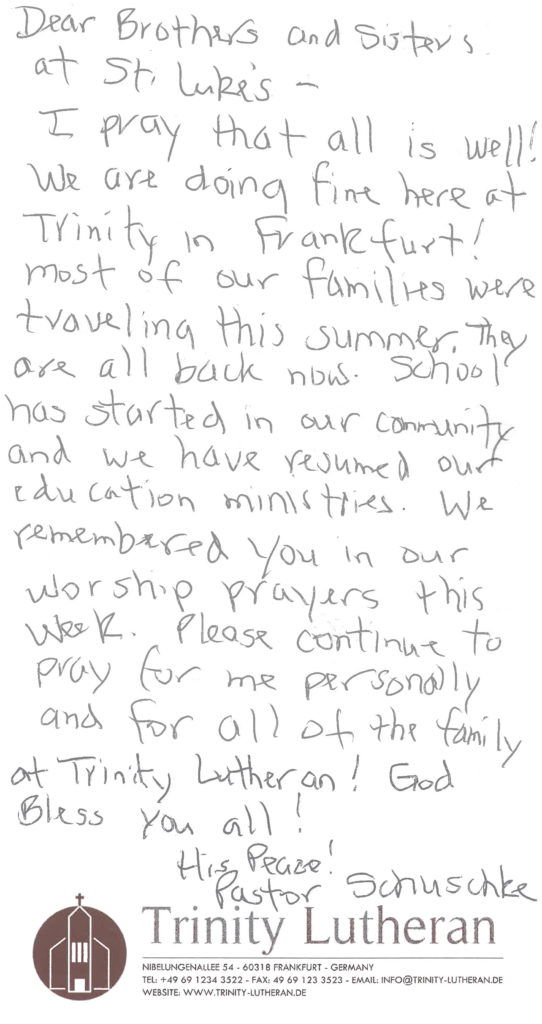 Dear Brothers and Sisters
at St. Luke's –
I pray that all is well!
We are doing fine here at
Trinity in Frankfurt!
most of our families were
traveling this summer. They
are all back now. School
has started in our community
and we have resumed our
education ministries. We
remembered you in our
worship prayers this
week. Please continue to
pray for me personally
and for all of the family
at Trinity Lutheran! God
Bless you all!
His Peace!
Pastor Schuschke
Trinity Lutheran
NIBELUNGENALLEE 54 - 60318 FRANKFURT - GERMANY
TEL: +49 69 1234 3522 - FAX: 49 69 123 3523 - EMAIL: INFO@TRINITY-LUTHERAN.DE
WEBSITE: WWW.TRINITY-LUTHERAN.DE